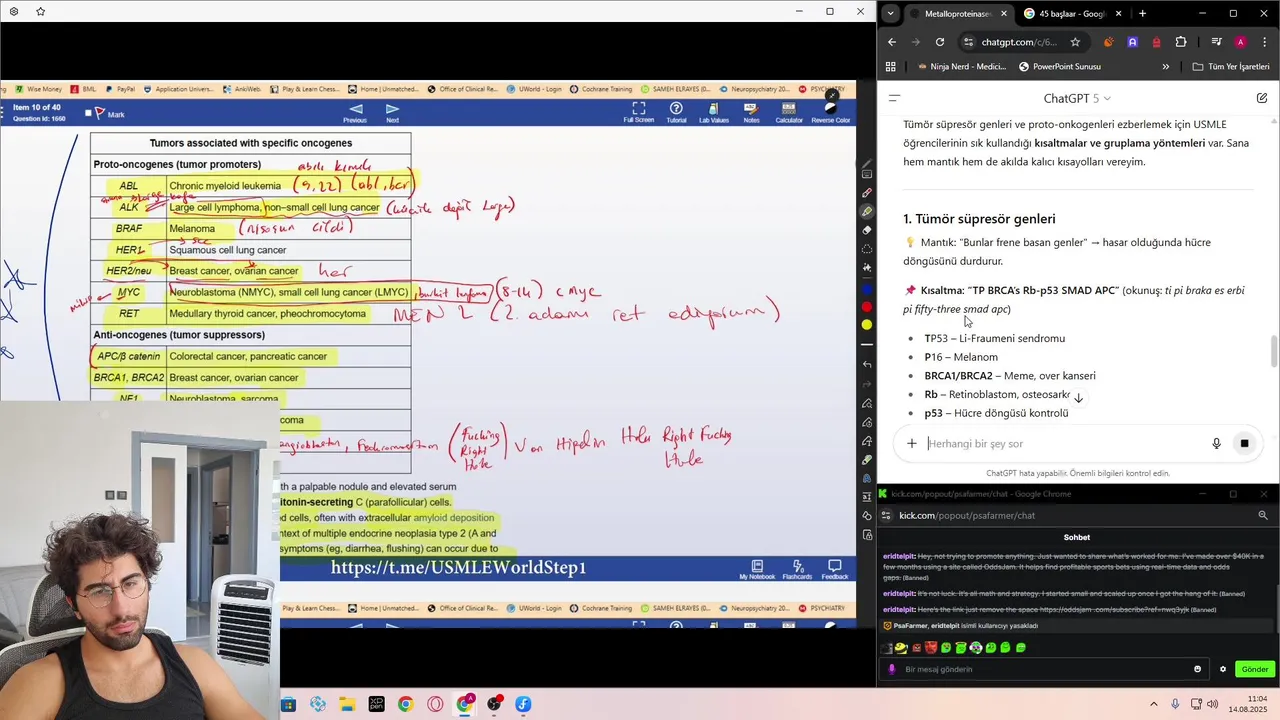 Metalloproteinase
45 başlaar - Google
chatgpt.com/c/6...
Ninja Nerd - Medici...
PowerPoint Sunusu
»
Tüm Yer İşaretleri
Wise Money
BML
PayPal
Application Univers...
AnkiWeb
Play & Learn Chess...
Home | Unmatched...
Office of Clinical Re...
UWorld - Login
Cochrane Training
SAMEH ELRAYES (...
Neuropsychiatry 20...
PSYCHIATRY
Item 10 of 40
Question Id: 1660
Mark
Previous
Next
Full Screen
Tutorial
Lab Values
Notes
Calculator
Reverse Color
Tumors associated with specific oncogenes
Proto-oncogenes (tumor promoters)
ABL
Chronic myeloid leukemia (9,22) (abl, bcr)
ALK
Large cell lymphoma, non–small cell lung cancer
BRAF
Melanoma
HER1
Squamous cell lung cancer
HER2/neu
Breast cancer, ovarian cancer her
MYC
Neuroblastoma (NMYC), small cell lung cancer (LMYC) (8-14) cMyc
RET
Medullary thyroid cancer, pheochromocytoma MEN 2 (2. adamı ret ediyorum)
Anti-oncogenes (tumor suppressors)
APC/β catenin
Colorectal cancer, pancreatic cancer
BRCA1, BRCA2
Breast cancer, ovarian cancer
NF1
Neuroblastoma, sarcoma
coma
(Fucking Right Hole) Von Hipolin Hole Right Fucking Hole
th a palpable nodule and elevated serum
itonin-secreting C (parafollicular) cells.
ed cells, often with extracellular amyloid deposition
ntext of multiple endocrine neoplasia type 2 (A and
symptoms (eg, diarrhea, flushing) can occur due to
https://t.me/USMLEWorldStep1
My Notebook
Flashcards
Feedback
Play & Learn Chess...
Home | Unmatched...
Office of Clinical Re...
UWorld - Login
Cochrane Training
SAMEH ELRAYES (...
Neuropsychiatry 20...
PSYCHIATRY
ChatGPT 5
Tümör süpresör genleri ve proto-onkogenleri ezberlemek için USMLE
öğrencilerinin sık kullandığı kısaltmalar ve gruplama yöntemleri var. Sana
hem mantık hem de akılda kalıcı kısayolları vereyim.
1. Tümör süpresör genleri
Mantık: "Bunlar frene basan genler" → hasar olduğunda hücre
döngüsünü durdurur.
Kısaltma: "TP BRCA's Rb-p53 SMAD APC" (okunuş: ti pi braka es erbi
pi fifty-three smad apc)
TP53 – Li-Fraumeni sendromu
P16 – Melanom
BRCA1/BRCA2 – Meme, over kanseri
Rb – Retinoblastom, osteosarko
p53 – Hücre döngüsü kontrolü
Herhangi bir şey sor
ChatGPT hata yapabilir. Önemli bilgileri kontrol edin.
kick.com/popout/psafarmer/chat - Google Chrome
kick.com/popout/psafarmer/chat
Sohbet
eridtelpit: Hey, not trying to promote anything. Just wanted to share what's worked for me. I've made over $40K in a
few months using a site called OddsJam. It helps find profitable sports bets using real-time data and odds
gaps. (Banned)
eridtelpit: It's not luck. It's all math and strategy. I started small and scaled up once I got the hang of it. (Banned)
eridtelpit: Here's the link just remove the space https://oddsjam .com/subscribe?ref=nwq3yjk (Banned)
PsaFarmer, eridtelpit isimli kullanıcıyı yasakladı
Bir mesaj gönderin
Gönder
11:04
14.08.2025